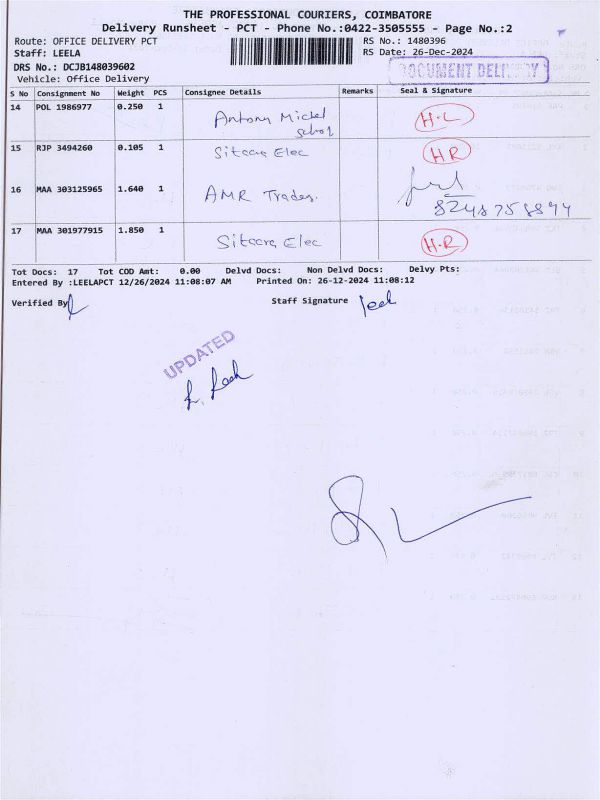 THE PROFESSIONAL COURIERS, COIMBATORE
Delivery Runsheet - PCT - Phone No.:0422-3505555 - Page No.:2
Route: OFFICE DELIVERY PCT RS No.: 1480396
Staff: LEELA RS Date: 26-Dec-2024
DRS No.: DCJB148039602
DOCUMENT DELIVERY
Vehicle: Office Delivery
S No Consignment No Weight PCS Consignee Details Remarks Seal & Signature
14 POL 1986977 0.250 1 Antony Michel H-L
15 RJP 3494260 0.105 1 Sitaara Elec HR
16 MAA 303125965 1.640 1 AMR Trades.
8248758894
17 MAA 301977915 1.850 1 Sitaara Elec H-R
Tot Docs: 17 Tot COD Amt: 0.00 Delvd Docs: Non Delvd Docs: Delvy Pts:
Entered By :LEELAPCT 12/26/2024 11:08:07 AM Printed On: 26-12-2024 11:08:12
Verified By Staff Signature leel
UPDATED